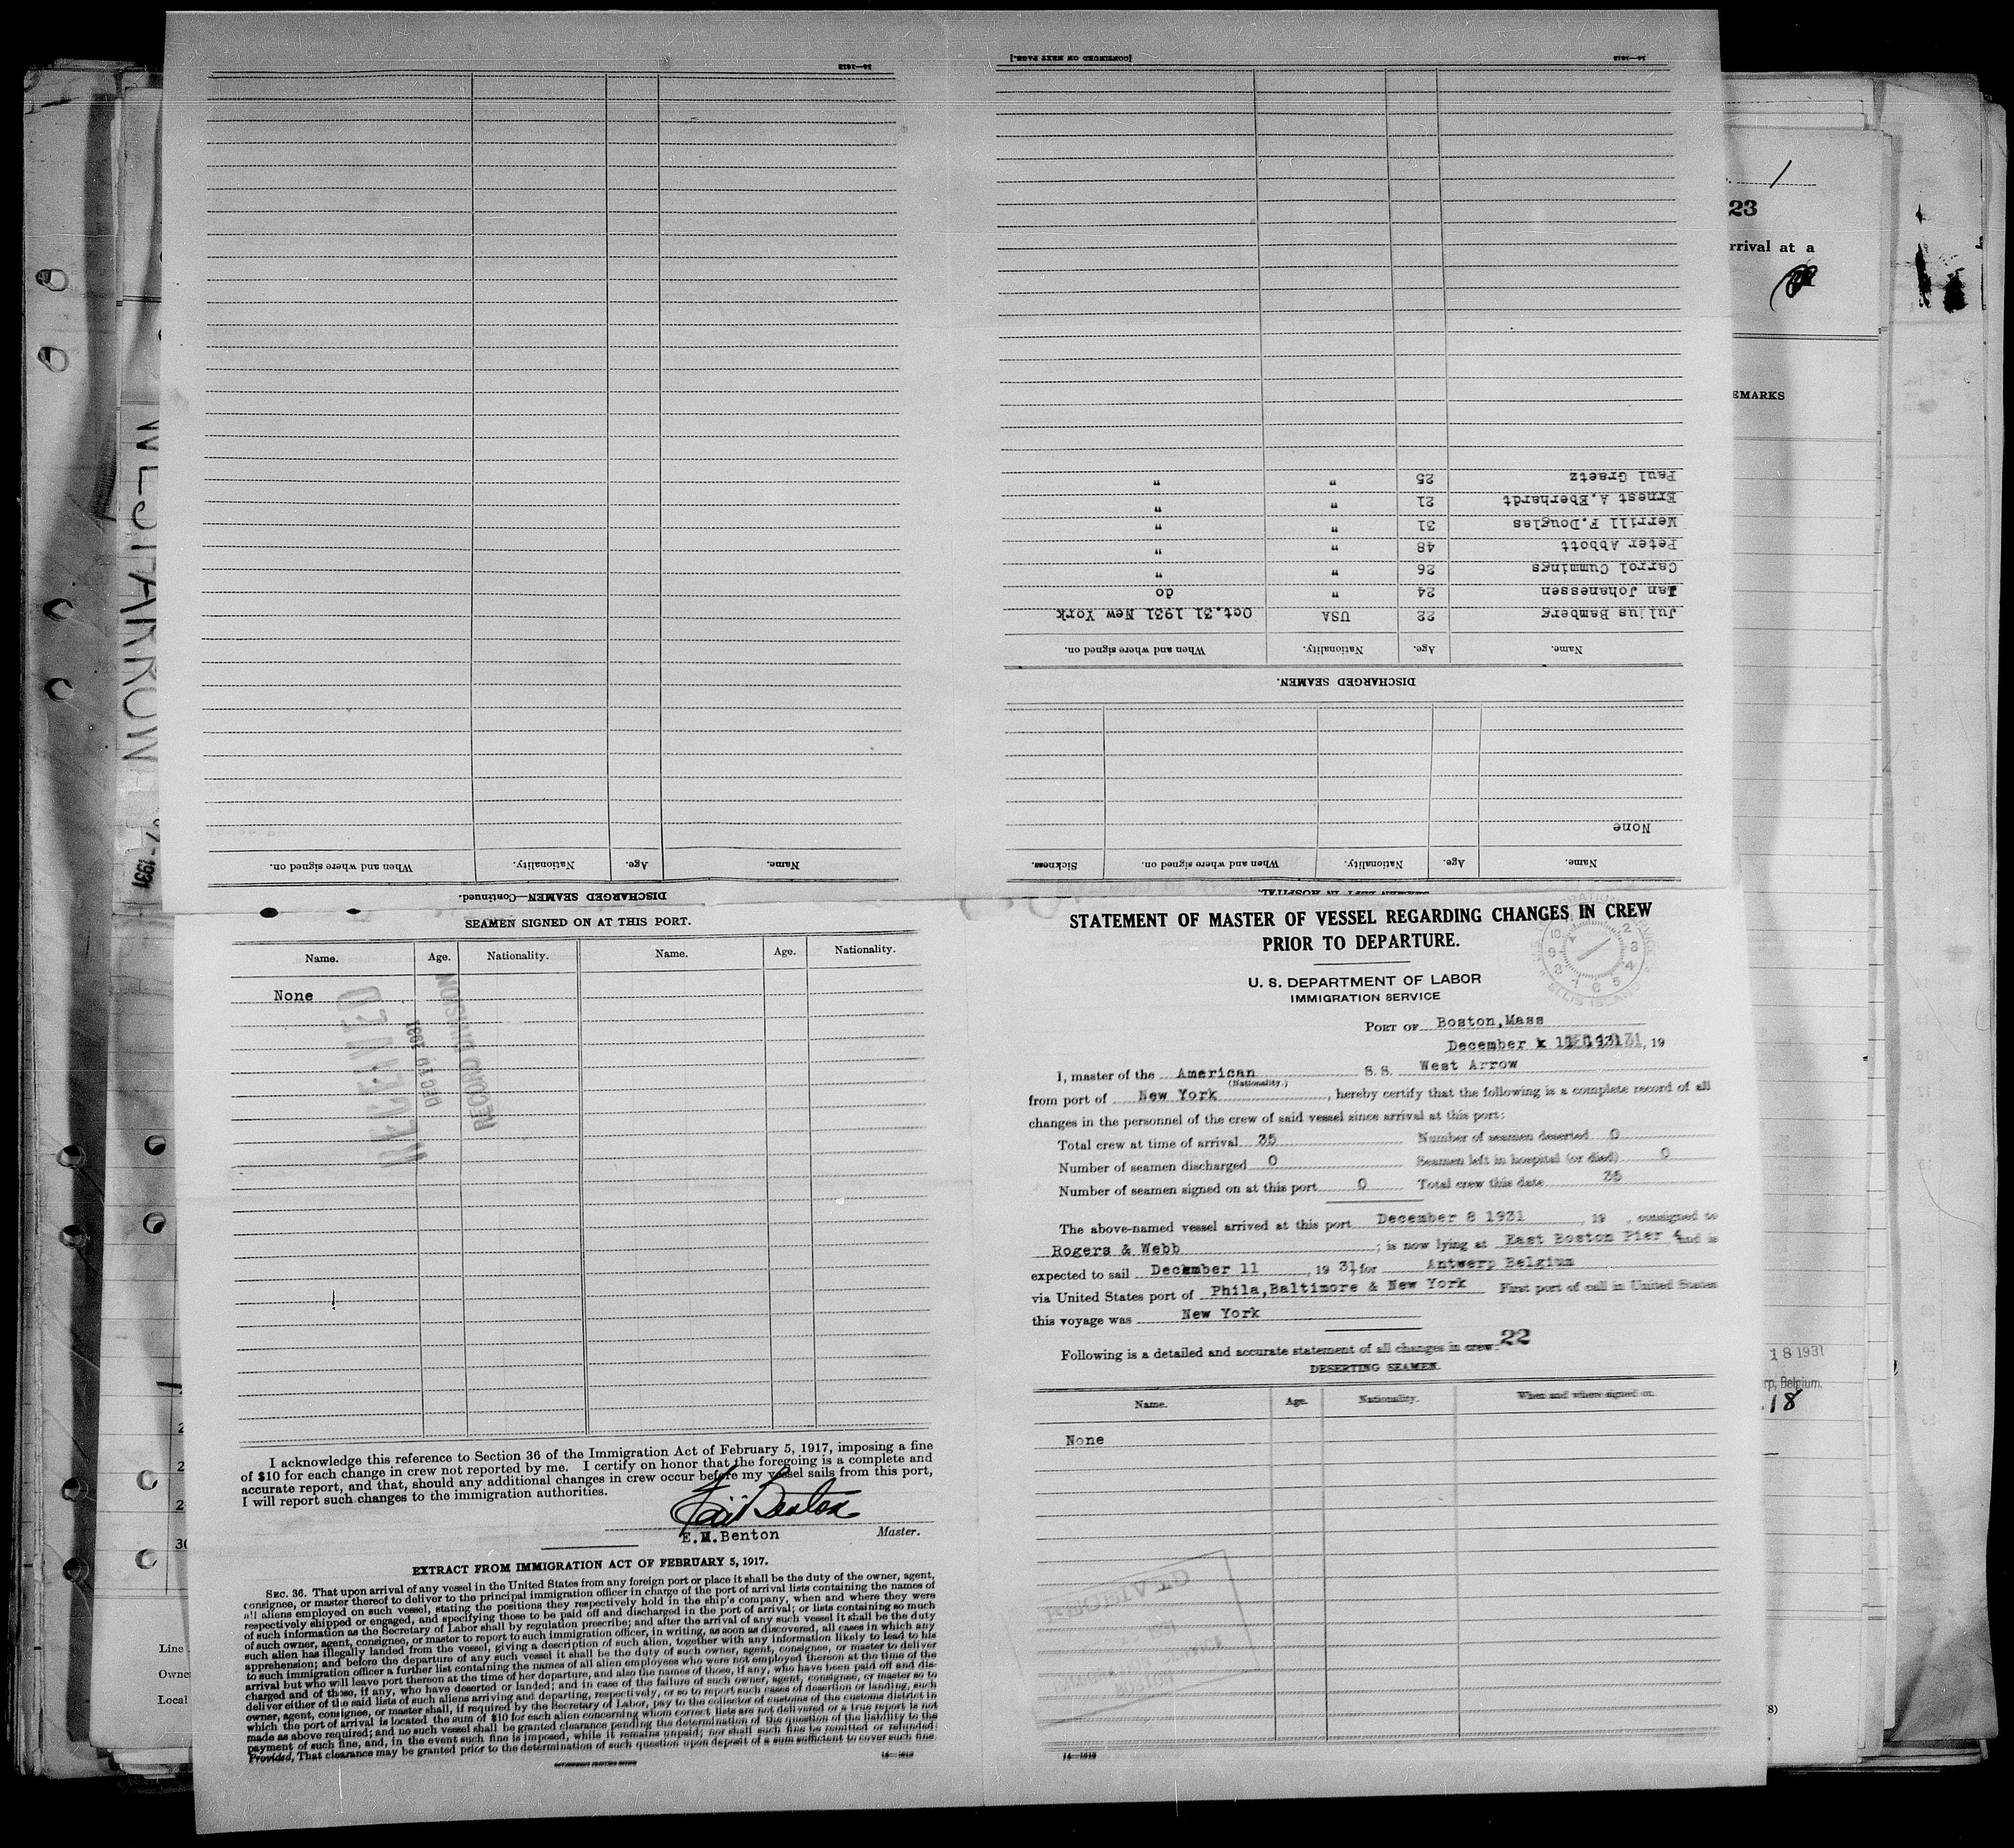 STATEMENT OF MASTER OF VESSEL REGARDING CHANGES IN CREW
PRIOR TO DEPARTURE.
U. S. DEPARTMENT OF LABOR
IMMIGRATION SERVICE
PORT OF Boston,Mass
December 1931, 19
I, master of the American S. S. West Arrow
(Nationality.)
from port of New York, hereby certify that the following is a complete record of all
changes in the personnel of the crew of said vessel since arrival at this port:
Total crew at time of arrival 35 Number of seamen deserted 0
Number of seamen discharged 0 Seamen left in hospital (or died) 0
Number of seamen signed on at this port 0 Total crew this date 35
The above-named vessel arrived at this port December 8 1931, 19 , consigned to
Rogers & Webb; is now lying at East Boston Pier 4 and is
expected to sail December 11, 19 31, for Antwerp Belgium
via United States port of Phila,Baltimore & New York First port of call in United States
this voyage was New York
Following is a detailed and accurate statement of all changes in crew: 22
DESERTING SEAMEN.
Name. Age. Nationality. When and where signed on.
None
14—1613
SEAMEN LEFT IN HOSPITAL.
Name. Age. Nationality. When and where signed on. Sickness.
None
DISCHARGED SEAMEN.
Name. Age. Nationality. When and where signed on.
Julius Bamberg 22 USA Oct.31 1931 New York
Jan Johanessen 24 " do
Carrol Cummings 26 " "
Peter Abbott 48 " "
Merrill F.Douglas 31 " "
Ernest A.Eberhardt 21 " "
Paul Graetz 25 " "
14—1613 [CONTINUED ON NEXT PAGE.]
DISCHARGED SEAMEN—Continued.
Name. Age. Nationality. When and where signed on.
14—1613
SEAMEN SIGNED ON AT THIS PORT.
Name. Age. Nationality. Name. Age. Nationality.
None
RECORD DIVISION
I acknowledge this reference to Section 36 of the Immigration Act of February 5, 1917, imposing a fine
of $10 for each change in crew not reported by me. I certify on honor that the foregoing is a complete and
accurate report, and that, should any additional changes in crew occur before my vessel sails from this port,
I will report such changes to the immigration authorities.
E.M.Benton Master.
EXTRACT FROM IMMIGRATION ACT OF FEBRUARY 5, 1917.
SEC. 36. That upon arrival of any vessel in the United States from any foreign port or place it shall be the duty of the owner, agent,
consignee, or master thereof to deliver to the principal immigration officer in charge of the port of arrival lists containing the names of
all aliens employed on such vessel, stating the positions they respectively hold in the ship's company, when and where they were
respectively shipped or engaged, and specifying those to be paid off and discharged in the port of arrival; or lists containing so much
of such information as the Secretary of Labor shall by regulation prescribe; and after the arrival of any such vessel it shall be the duty
of such owner, agent, consignee, or master to report to such immigration officer, in writing, as soon as discovered, all cases in which any
such alien has illegally landed from the vessel, giving a description of such alien, together with any information likely to lead to his
apprehension; and before the departure of any such vessel it shall be the duty of such owner, agent, consignee, or master to deliver
to such immigration officer a further list containing the names of all alien employees who were not employed thereon at the time of the
arrival but who will leave port thereon at the time of her departure, and also the names of those, if any, who have been paid off and dis-
charged and of those, if any, who have deserted or landed; and in case of the failure of such owner, agent, consignee, or master so to
deliver either of the said lists of such aliens arriving and departing, respectively, or so to report such cases of desertion or landing, such
owner, agent, consignee, or master shall, if required by the Secretary of Labor, pay to the collector of customs of the customs district in
which the port of arrival is located the sum of $10 for each alien concerning whom correct lists are not delivered or a true report is not
made as above required; and no such vessel shall be granted clearance pending the determination of the question of the liability to the
payment of such fine, and, in the event such fine is imposed, while it remains unpaid; nor shall such fine be remitted or refunded:
Provided, That clearance may be granted prior to the determination of such question upon deposit of a sum sufficient to cover such fine.
14—1613
GOVERNMENT PRINTING OFFICE
WEST ARROW
1931
1
23
rrival at a
EMARKS
18 1931
rp, Belgium,
18
30
Line
Owne
Local